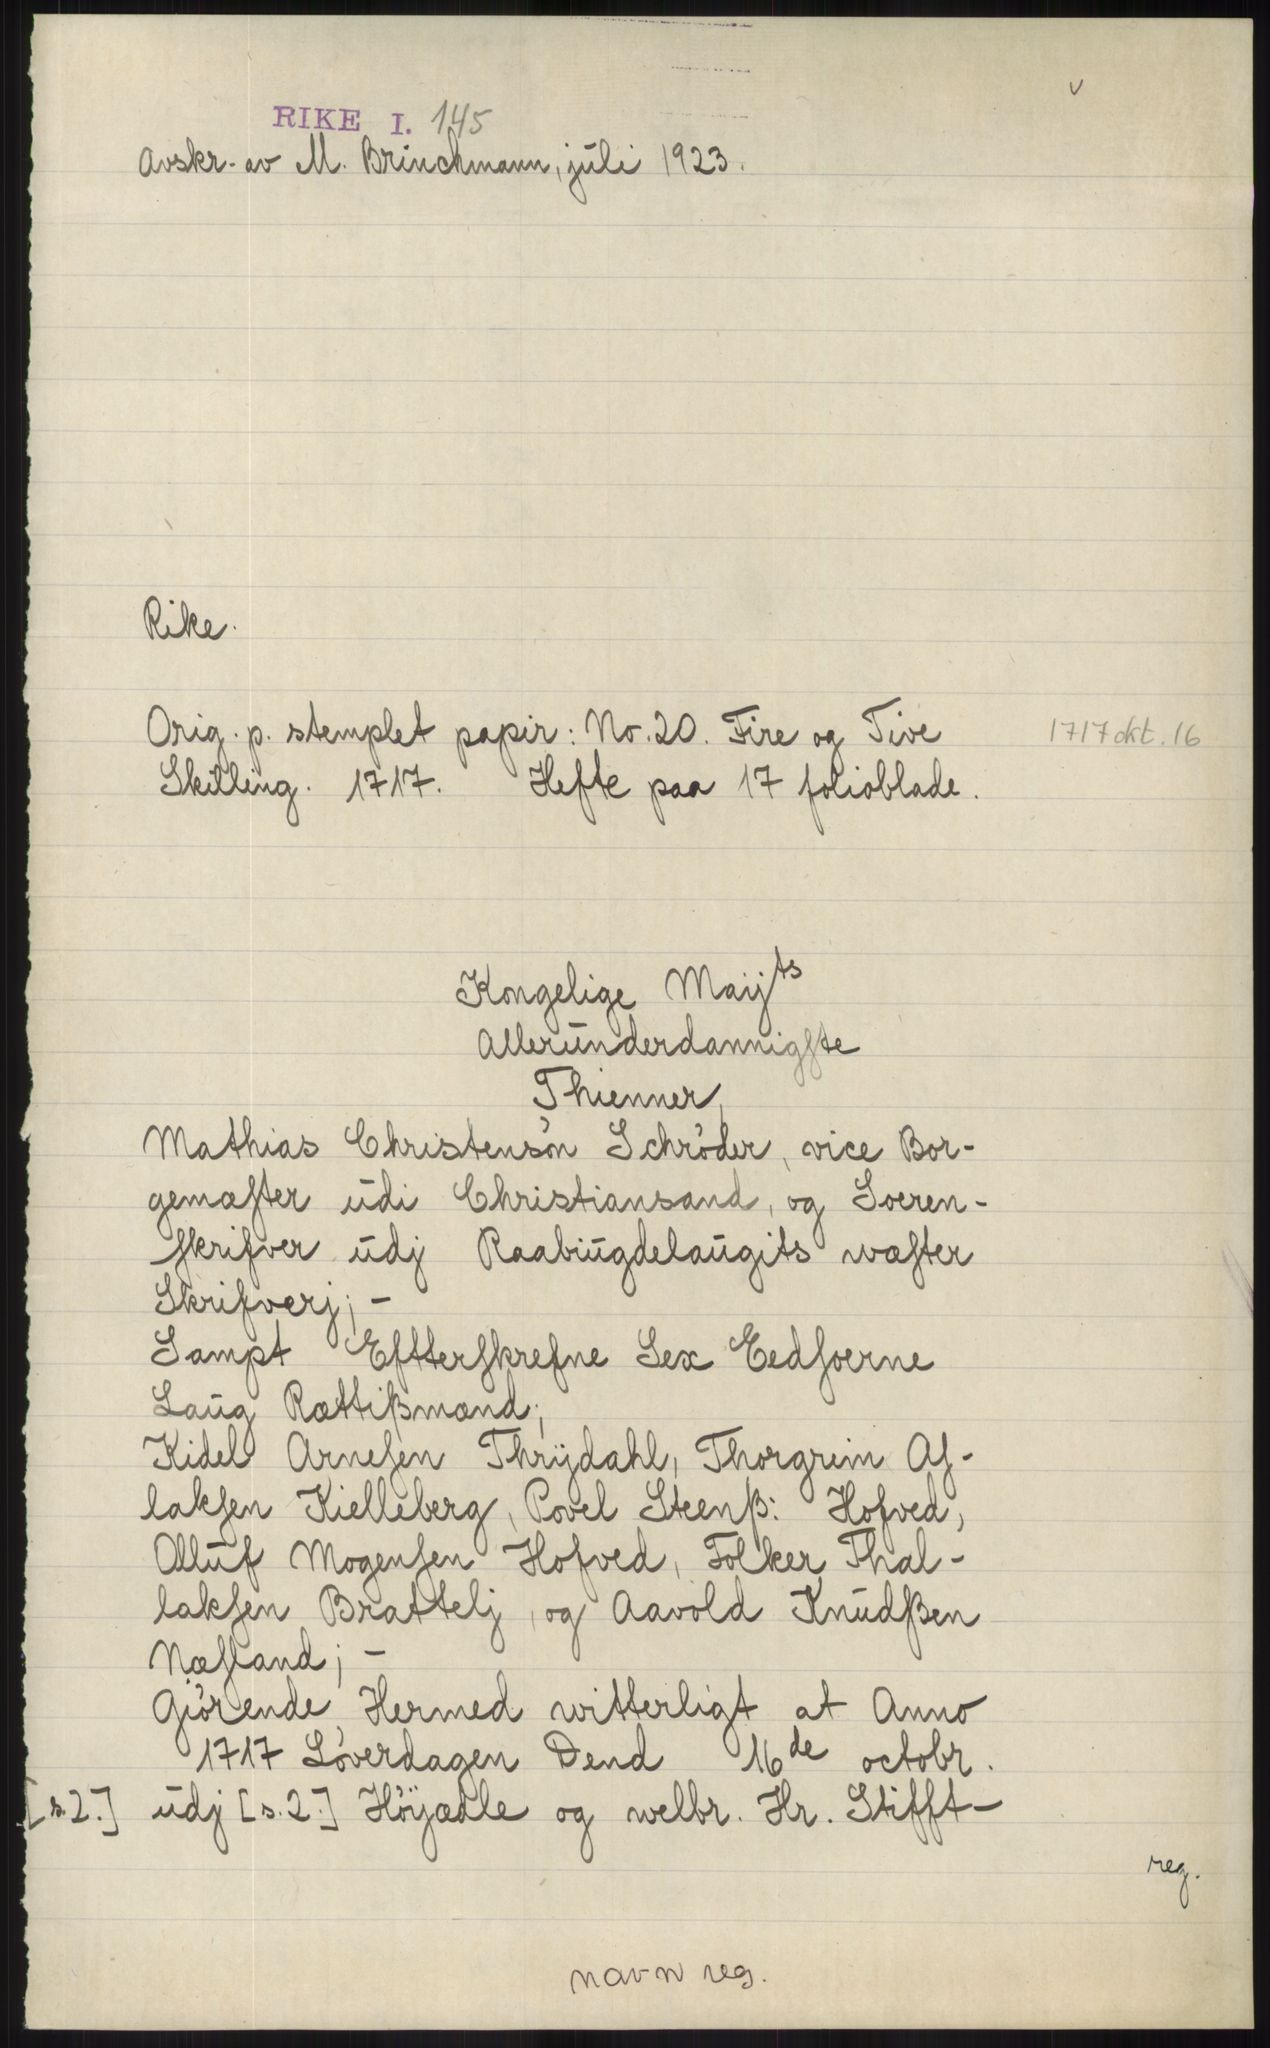 v
RIKE I. 145
Avskr. av M. Brinchmann, juli 1923.
Rike.
Orig. p. stemplet papir: No. 20. Fire og Tive
1717 okt. 16
Skilling. 1717. Hefte paa 17 folioblade.
Kongelige Maijts
Allerunderdannigste
Thienner,
Mathias Christensøn Schrøder, vice Bor-
gemæster udi Christiansand, og Soeren-
skrifver udj Raabiugdelaugits wæster
Skrifverj; -
Sampt Eftterskrefne Sex Eedsoerne
Laug Rættißmænd;
Kidel Arnesen Thrÿdahl, Thorgrim As-
laksen Kielleberg, Povel Steenß: Hofved,
Olluf Mogensen Hofved, Folker Thal-
laksen Brattelj, og Aavold Knudßen
Næsland; -
Giørende Hermed witterligt at Anno
1717 Løverdagen Dend 16de octobr.
[s. 2.] udj [s. 2.] Høÿædle og welbr. Hr. Stifft-
reg.
navn reg.